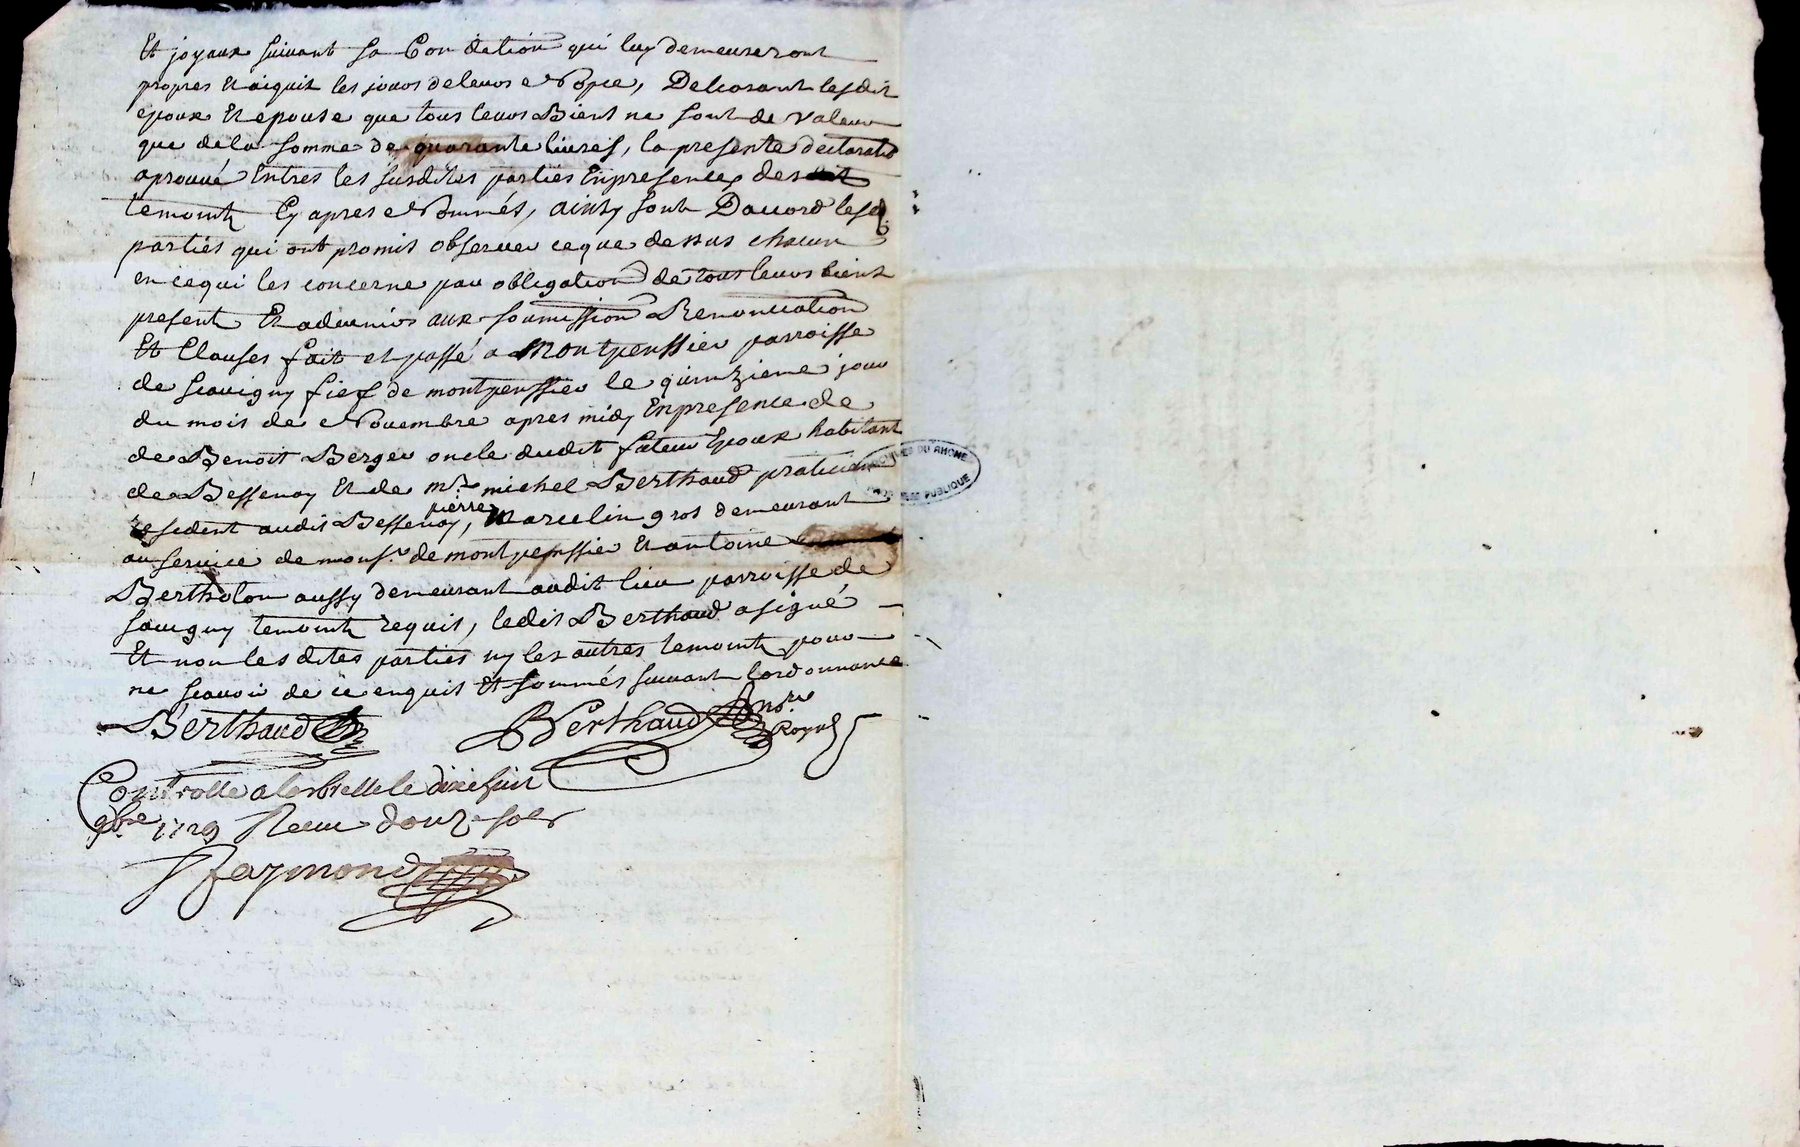 Et joyaux suivant sa Condition qui luy demeureront
propres Et aiquit les jours de leurs Nopce, Declarant lesdit
epoux Et epouse que tous leurs Bient ne sont de valeur
que de la somme de quarante livres, la presente declaratio
aprouué Entres les susdites partiés En presences des
temoint Cy apres Nommés, ainsy sont Daccord lesd
partiés qui ont promis observer ce que dessus chacun
en ce qui les concerne par obligation de tous leurs bient
present Et advenir aux soumission Renonciation
Et Clauses fait et passé a Montpenssier parroisse
de savigny fief de montpenssier le quinzieme jour
du mois de Novembre apres midy En presence de
de Benoit Berger oncle dudit futeur Epoux habitant
de Bessenay Et de mre michel Berthaud praticien
resident audit Bessenay, pierre Marcelin gros demeurant
au service de monsr de montpenssier Et antoine
Bertholon aussy demeurant audit lieu parroisse de
savigny temoint requit, ledit Berthaud a signé
Et non les dites partiés ny les autres temoint pour
ne scavoir de ce enquit Et sommés suivant lordonnance
Berthaud Berthaud nore
Royal
Controlle a larbresle le dixehuit
9bre 1729 Receu douze sols
Raymond
ARCHIVES DU RHONE
PUBLIQUE